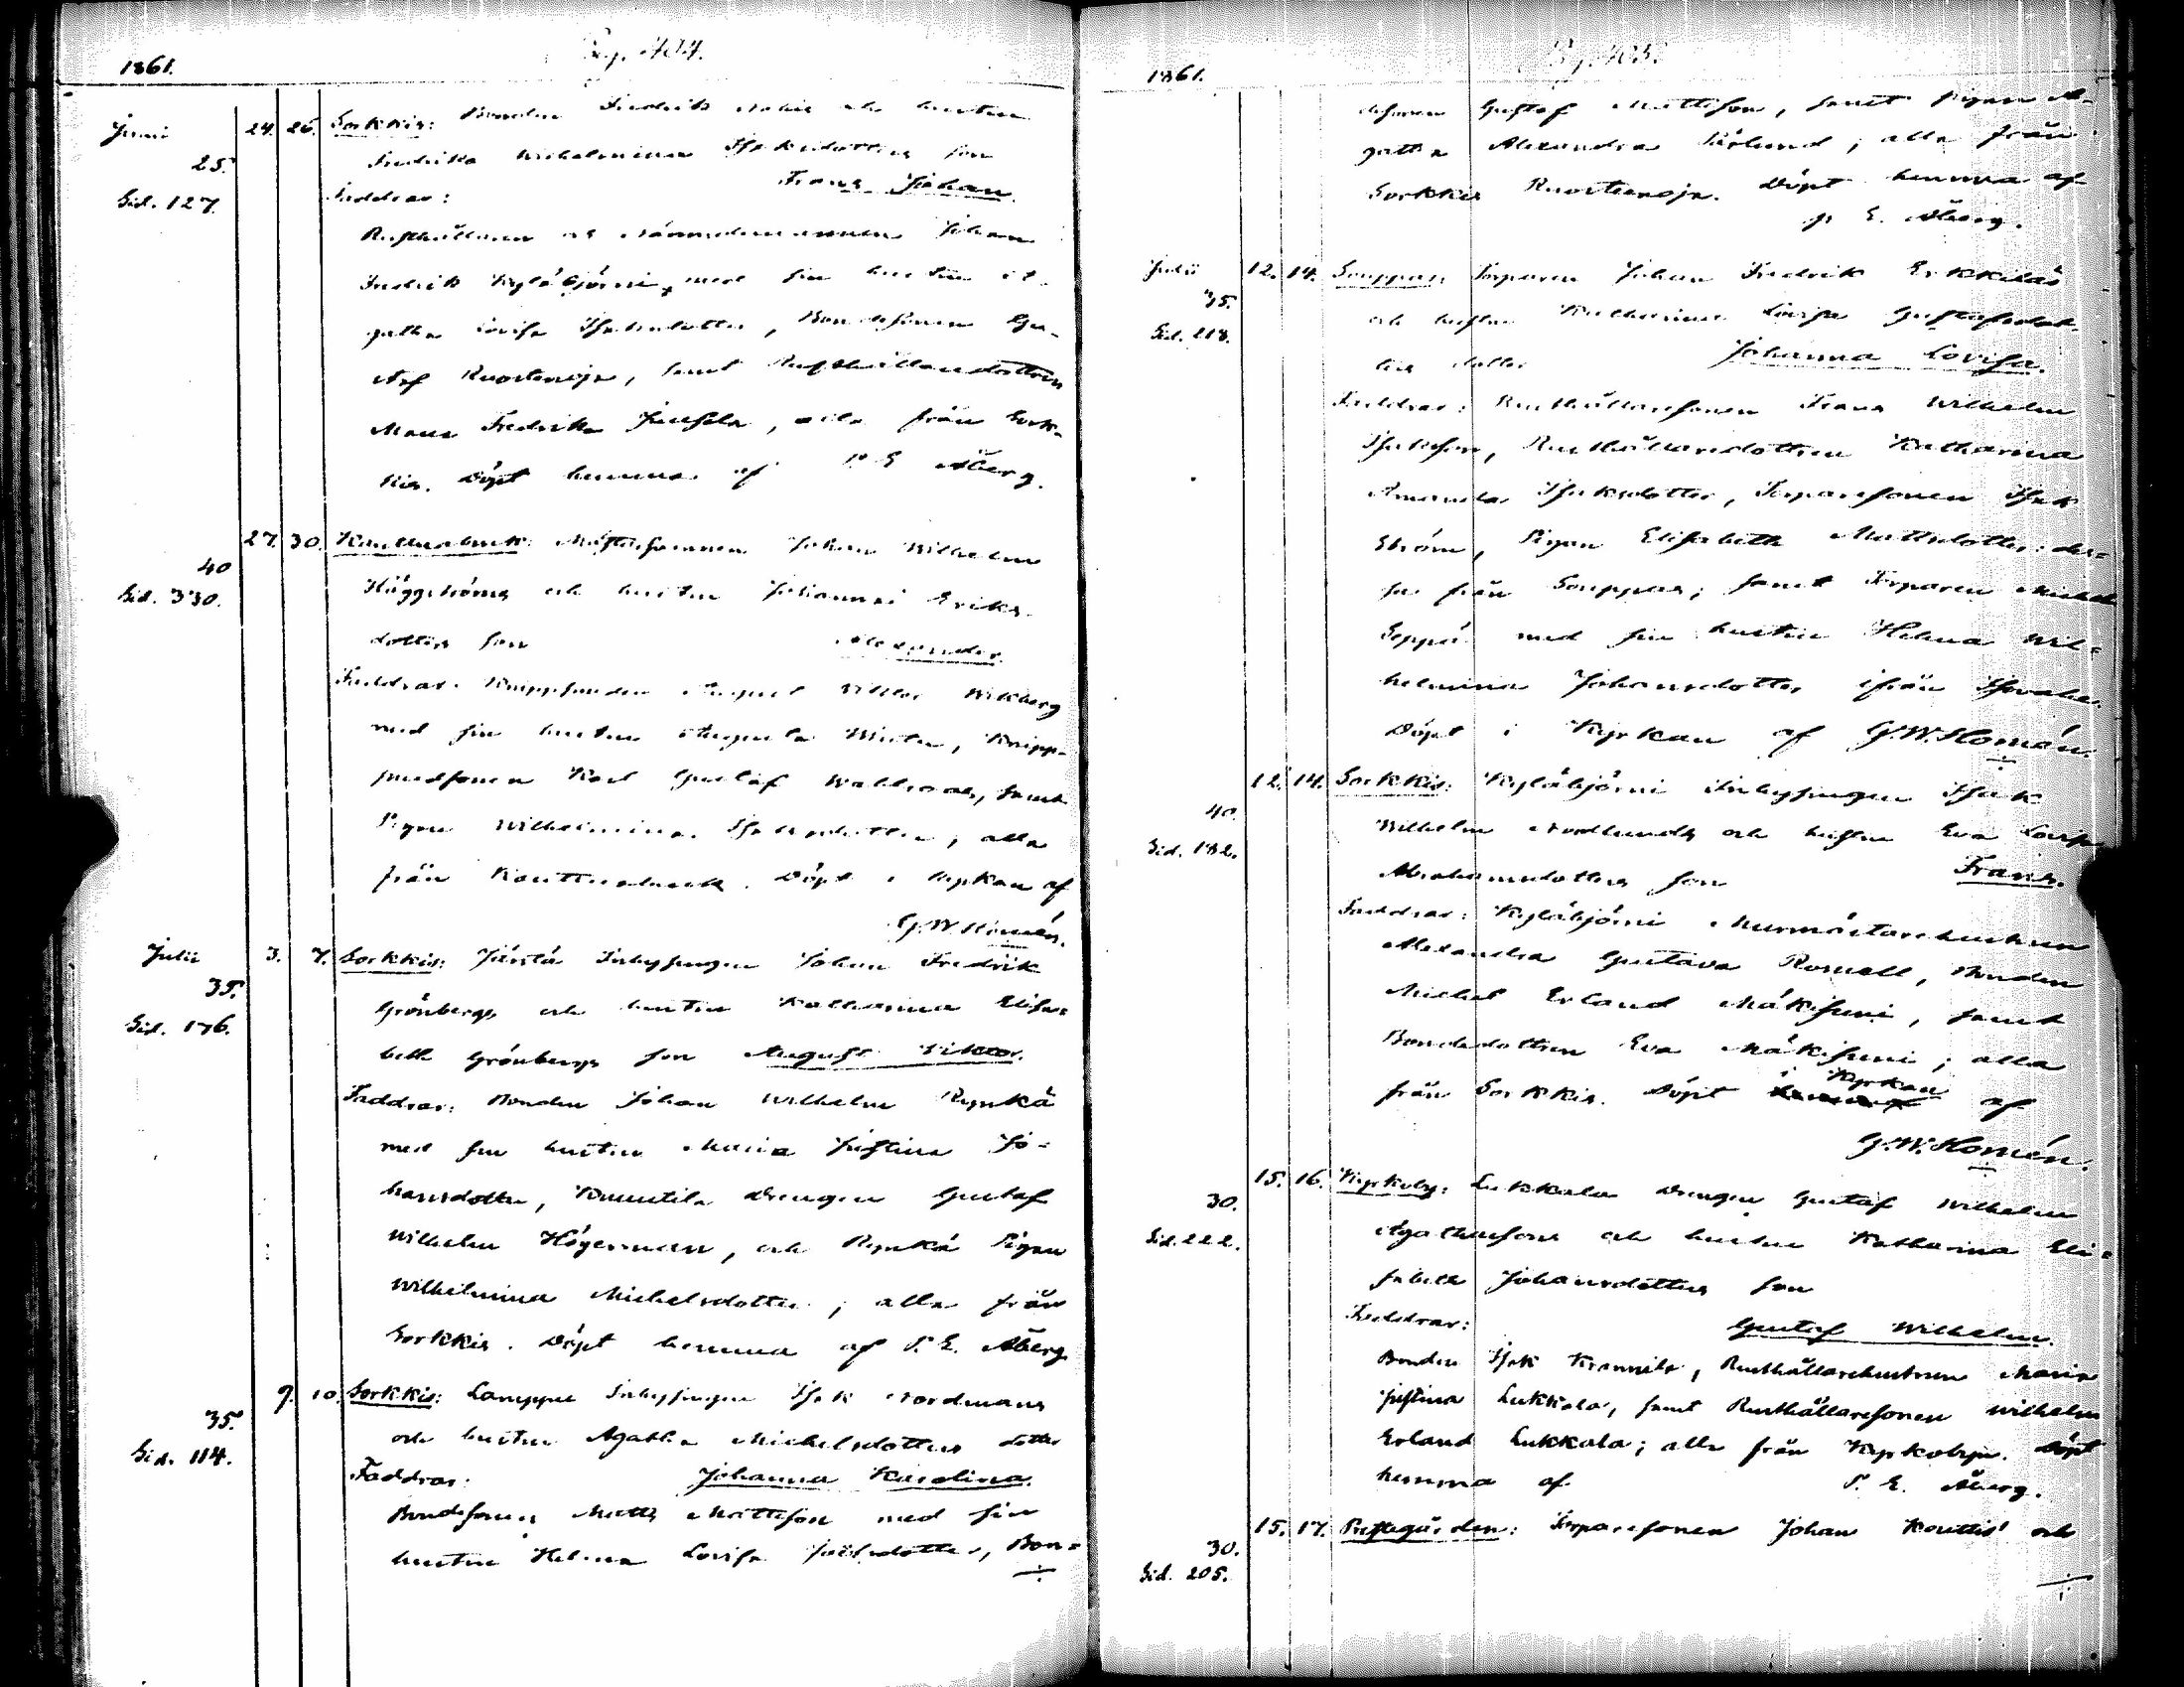 1861. Pag. 404.
Juni 24. 26. Sorkkis: Bonden Fredrik och hustru
25. Fredrika Wilhelmina Isaksdotters son
Sid. 127. Faddrar: Frans Johan.
Rusthållaren och Nämndemannen Johan
Fredrik Kyläbjörni, med sin hustru A-
gatha Lovisa Isaksdotter, Bondesonen Gu-
staf Ruostenoja, samt Rusthållaredottren
Maria Fredrika Jussila, alla från Sork-
kis. Döpt hemma af P. E. Åberg.
27. 30. Kauttuabruk: Mästersvennen Johan Wilhelm
40
Sid. 330. Häggströms och hustru Johanna Eriks-
dotters son Alexander.
Faddrar: Knippsmeden August Viktor Wikberg
med sin hustru Augusta Winter, Knipp-
smedsonen Karl Gustaf Wahlroos, samt
Pigan Wilhelmina Isaksdotter, alla
från Kauttuabruk. Döpt i kyrkan af
G. W. Homén.
Julii 3. 7. Sorkkis: Järstä Inhysingen Johan Fredrik
35.
Sid. 176. Grönbergs och hustru Katharina Elisa-
beth Grönbergs son August Viktor.
Faddrar: Bonden Johan Wilhelm Rynkä
med sin hustru Maria Justina Jo-
hansdotter, Knuutila Drengen Gustaf
Wilhelm Högerman, och Rynkä Pigan
Wilhelmina Michelsdotter; alla från
Sorkkis. Döpt hemma af P. E. Åberg.
9. 10. Sorkkis: Lamppu Inhysingen Isak Nordmans
35.
Sid. 114. och hustru Agatha Michelsdotters dotter
Faddrar: Johanna Karolina.
Bondesonen Matts Mattsson med sin
hustru Helena Lovisa Josefsdotter, Bon-
1861. Pag. 405.
desonen Gustaf Mattsson, samt Pigan A-
gatha Alexandra Särlund; alla från
Sorkkis Ruostenoja. Döpt hemma af
P. E. Åberg.
Julii 12. 14. Souppas: Torparen Johan Fredrik Erkkiläs
35.
Sid. 218. och hustru Katharina Lovisa Gustafsdot-
ters dotter Johanna Lovisa.
Faddrar: Rusthållaresonen Frans Wilhelm
Isaksson, Rusthållaredottren Katharina
Amanda Isaksdotter, Torparesonen Isak
Ström, Pigan Elisabeth Mattsdotter: des-
sa från Souppas; samt Torparen Michel
Seppä med sin hustru Helena Wil-
helmina Johansdotter ifrån
Döpt i Kyrkan af G. W. Homén.
12. 14. Sorkkis: Kyläbjörni Inhysingen Isak
40.
Sid. 182. Wilhelm Nordlunds och hustru Eva Lovisa
Abrahamsdotters son Frans.
Faddrar: Kyläbjörni Murmästarehustrun
Alexandra Gustava Rosnell, Bonden
Michel Erland Mäkisuni, samt
Bondedottren Eva Mäkisuni; alla
från Sorkkis. Döpt i Kyrkan af
G. W. Homén.
15. 16. Kyrkoby: Lukkala Drengen Gustaf Wilhelm
30.
Sid. 222. Agathussons och hustru Katharina Eli-
sabeth Johansdotters son
Faddrar: Gustaf Wilhelm.
Bonden Isak Krannila, Rusthållarehustrun Maria
Justina Lukkala, samt Rusthållaresonen Wilhelm
Erland Lukkala; alla från Kyrkobyn. Döpt
hemma af P. E. Åberg.
15. 17. Prestegården: Torparesonen Johan Kouttis och
30.
Sid. 205.